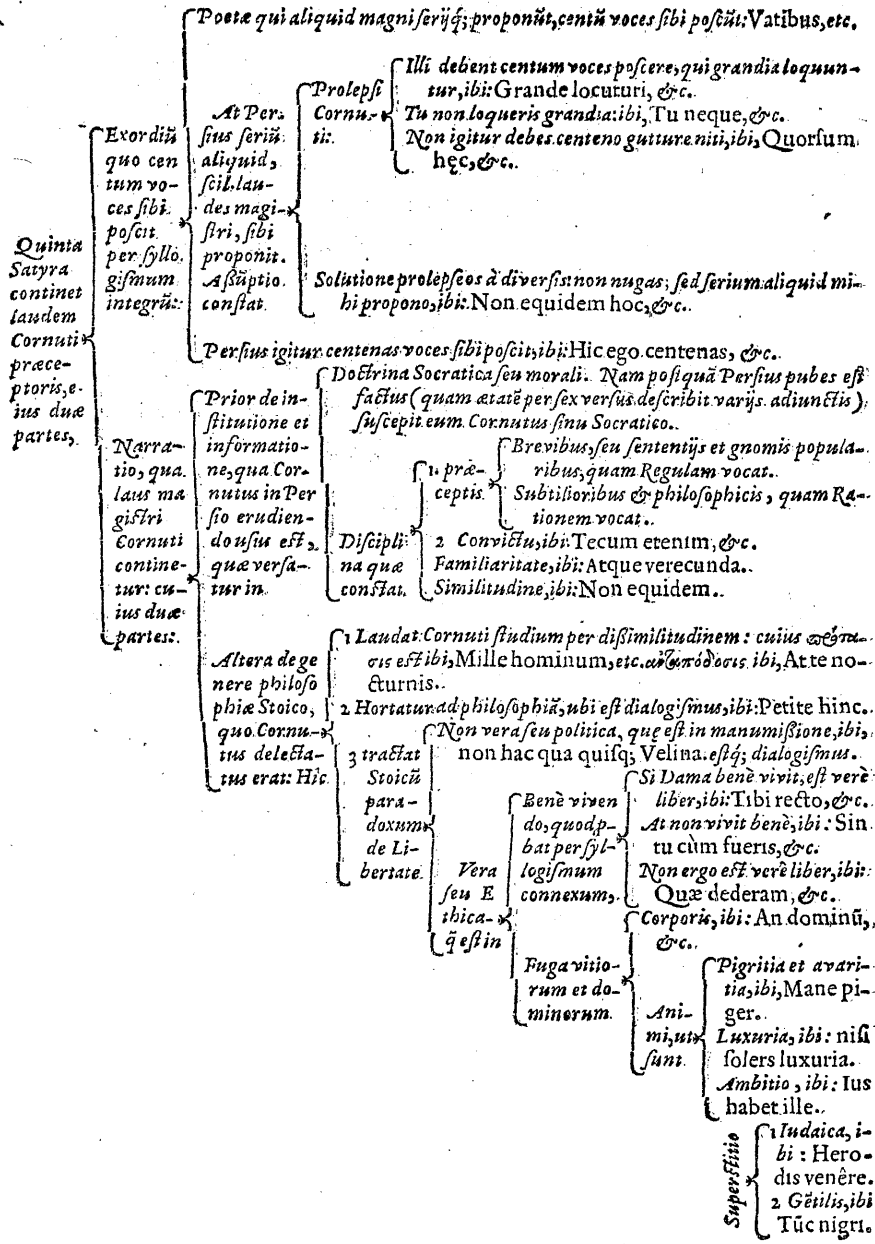 Poetæ qui aliquid magni serijq; proponūt, centū voces sibi poscūt: Vatibus, etc.
Quinta
Satyra
continet
laudem
Cornuti
præce-
ptoris, e-
ius duæ
partes,
Exordiū
quo cen
tum vo-
ces sibi
poscit
per syllo
gismum
integrū:
At Per-
sius seriū
aliquid,
scil. lau-
des magi-
stri, sibi
proponit.
Assūptio
constat.
Prolepsi
Cornu-
ti:
Illi debent centum voces poscere, qui grandia loquun-
tur, ibi: Grande locuturi, &c.
Tu non loqueris grandia: ibi, Tu neque, &c.
Non igitur debes centeno gutture niti, ibi, Quorsum
hęc, &c.
Solutione prolepseos à diversis: non nugas; sed serium aliquid mi-
hi propono, ibi: Non equidem hoc, &c.
Persius igitur centenas voces sibi poscit, ibi: Hic ego centenas, &c.
Narra-
tio, qua
laus ma
gistri
Cornuti
contine-
tur: cu-
ius duæ
partes:
Prior de in-
stitutione et
informatio-
ne, qua Cor-
nutus in Per
sio erudien-
do usus est,
quæ versa-
tur in
Doctrina Socratica seu morali. Nam postquā Persius pubes est
factus (quam ætatē per sex versus describit varijs adiunctis)
suscepit eum Cornutus sinu Socratico.
Discipli
na quæ
constat.
1. præ-
ceptis
Brevibus, seu sententijs et gnomis popula-
ribus, quam Regulam vocat.
Subtilioribus & philosophicis, quam Ra-
tionem vocat.
2 Convictu, ibi: Tecum etenim, &c.
Familiaritate, ibi: Atque verecunda.
Similitudine, ibi: Non equidem.
Altera de ge
nere philoso
phiæ Stoico,
quo Cornu-
tus delecta-
tus erat: Hic
1 Laudat Cornuti studium per dissimilitudinem: cuius πρότα-
σις est ibi, Mille hominum, etc. ἀνταπόδοσις ibi, At te no-
cturnis.
2 Hortatur ad philosophiā, ubi est dialogismus, ibi: Petite hinc.
3 tractat
Stoicū
para-
doxum
de Li-
bertate.
Non vera seu politica, quę est in manumissione, ibi,
non hac qua quisq; Velina. estq; dialogismus.
Vera
seu E
thica-
q̄ est in
Benè viven
do, quod p-
bat per syl-
logismum
connexum,
Si Dama benè vivit, est verè
liber, ibi: Tibi recto, &c.
At non vivit benè, ibi: Sin
tu cùm fueris, &c.
Non ergo est verè liber, ibi:
Quæ dederam, &c.
Fuga vitio-
rum et do-
minorum.
Corporis, ibi: An dominū,
&c.
Ani-
mi, ut
sunt
Pigritia et avari-
tia, ibi, Mane pi-
ger.
Luxuria, ibi: nisi
solers luxuria.
Ambitio, ibi: Ius
habet ille.
Superstitio
1 Iudaica, i-
bi: Hero-
dis venêre.
2 Gētilis, ibi
Tūc nigri.